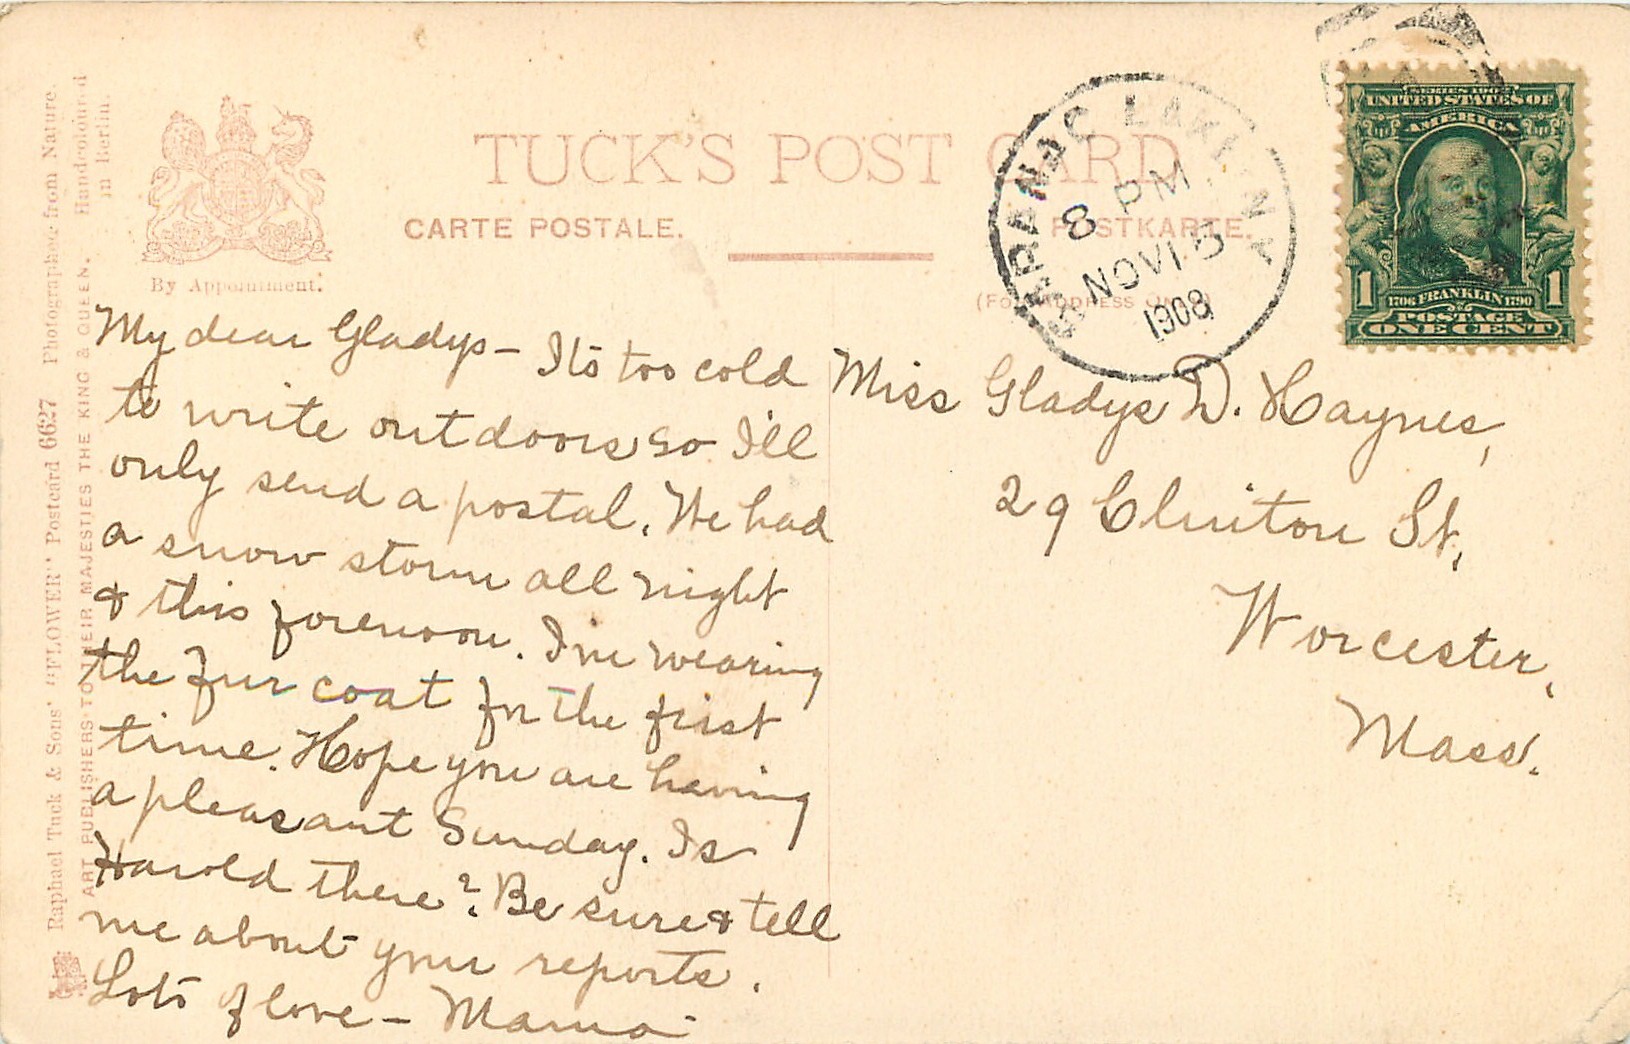 TUCK'S POST CARD
CARTE POSTALE.
POSTKARTE.
(FOR ADDRESS ONLY)
By Appointment.
Raphael Tuck & Sons' "FLOWER" Postcard 6627 Photographed from Nature. Handcoloured in Berlin.
ART PUBLISHERS TO THEIR MAJESTIES THE KING & QUEEN.
SARANAC LAKE, N.Y.
8 PM
NOV 15
1908
UNITED STATES OF
AMERICA
1 1706 FRANKLIN 1790 1
POSTAGE
ONE CENT
My dear Gladys - Its too cold
to write outdoors so I'll
only send a postal. We had
a snow storm all night
& this forenoon. I'm wearing
the fur coat for the first
time. Hope you are having
a pleasant Sunday. Is
Harold there? Be sure & tell
me about your reports.
Lots of love - Mama
Miss Gladys D. Haynes,
29 Clinton St.,
Worcester,
Mass.